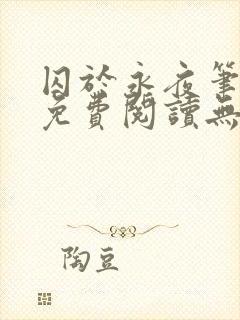 囚於永夜筆
免費閱讀無
陶豆